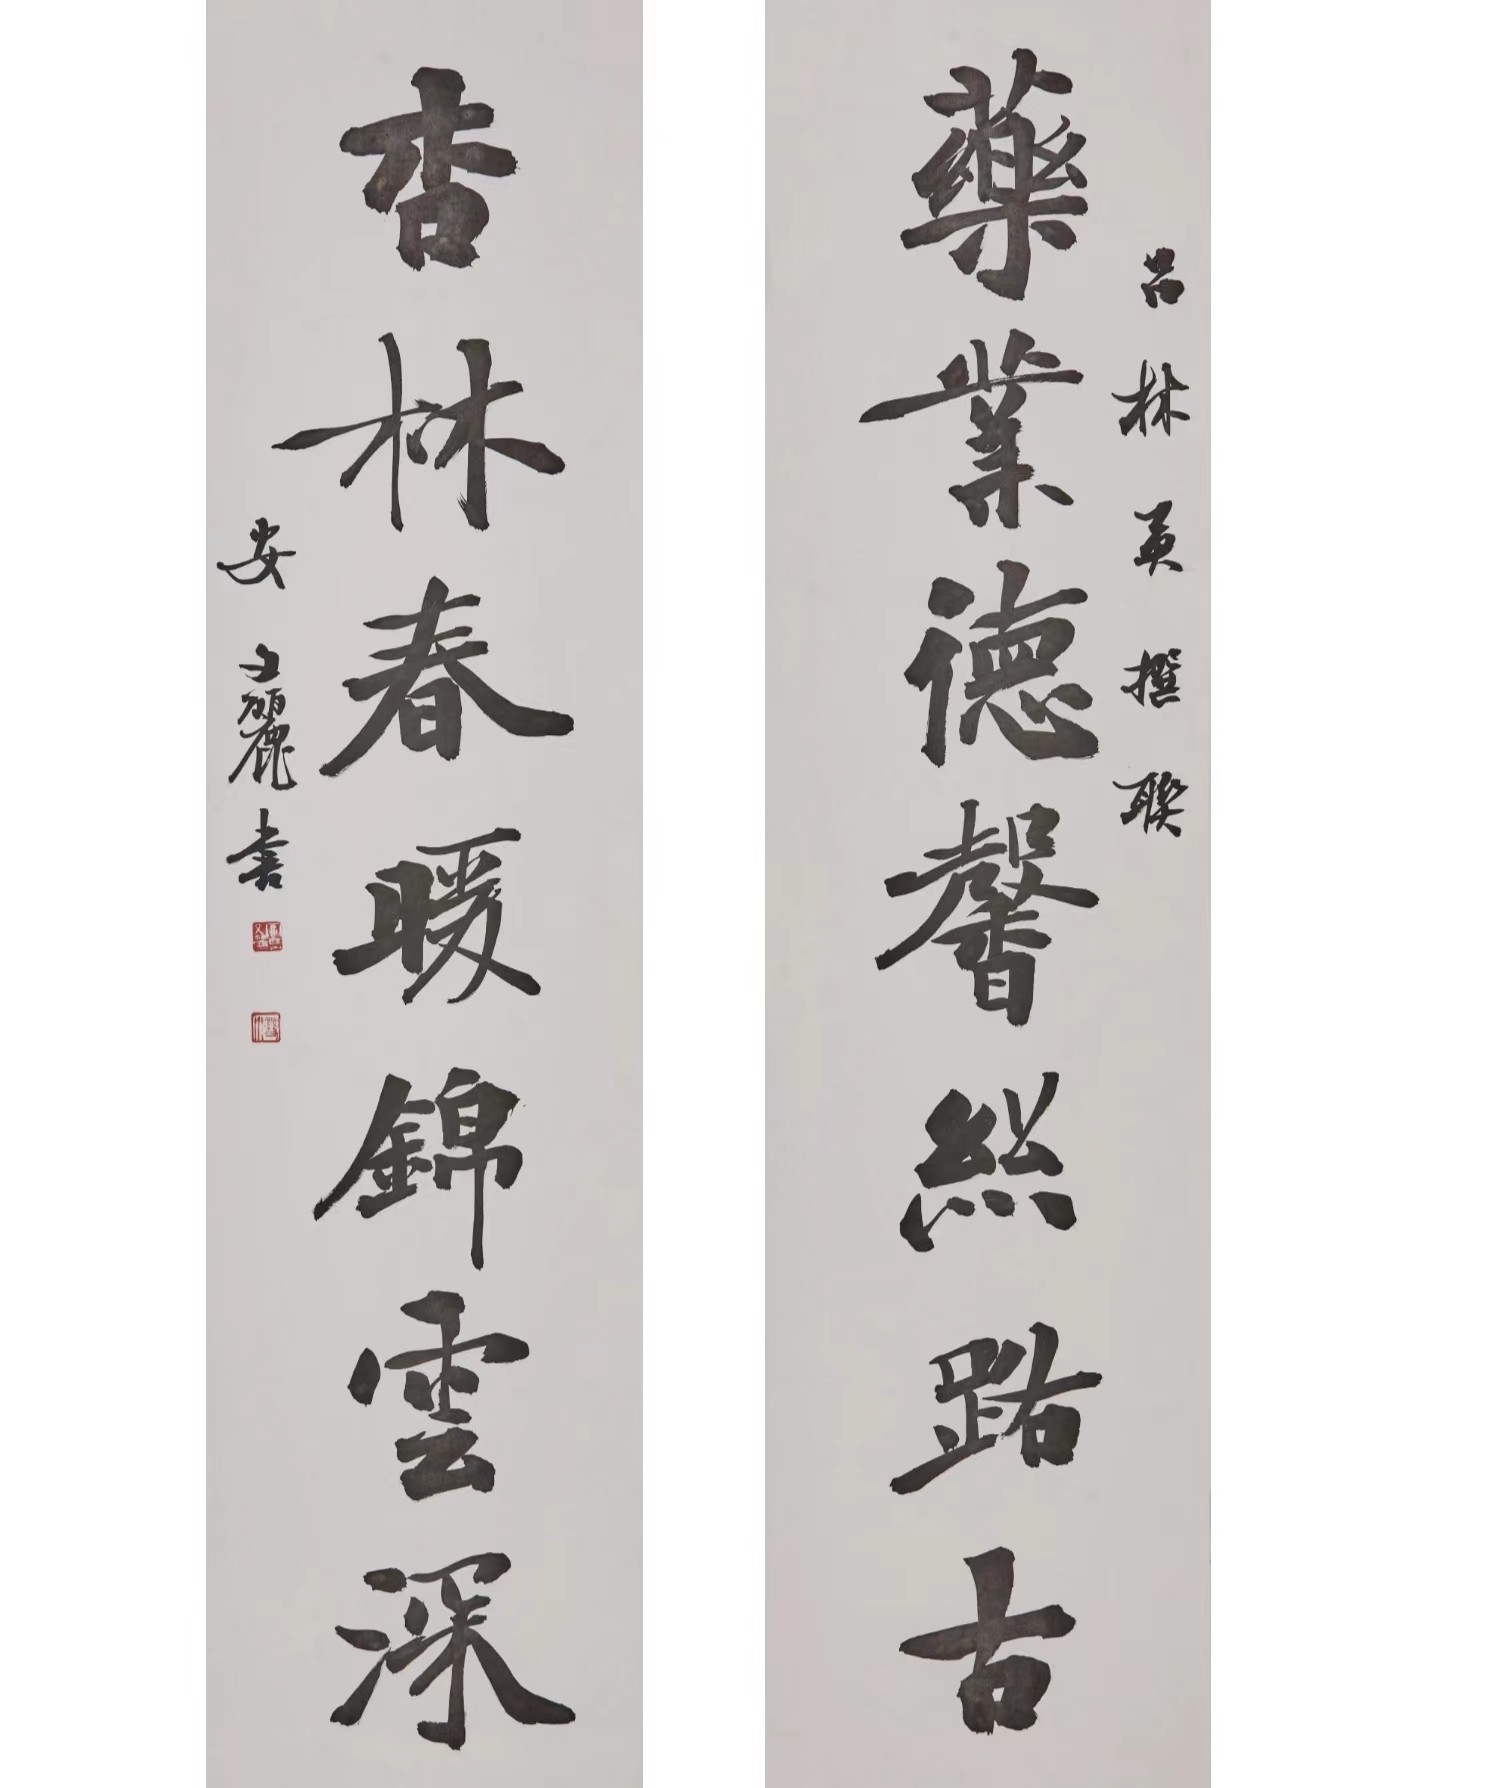 藥業德馨絲路古
呂林英撰聯
杏林春暖錦雲深
安文麗書